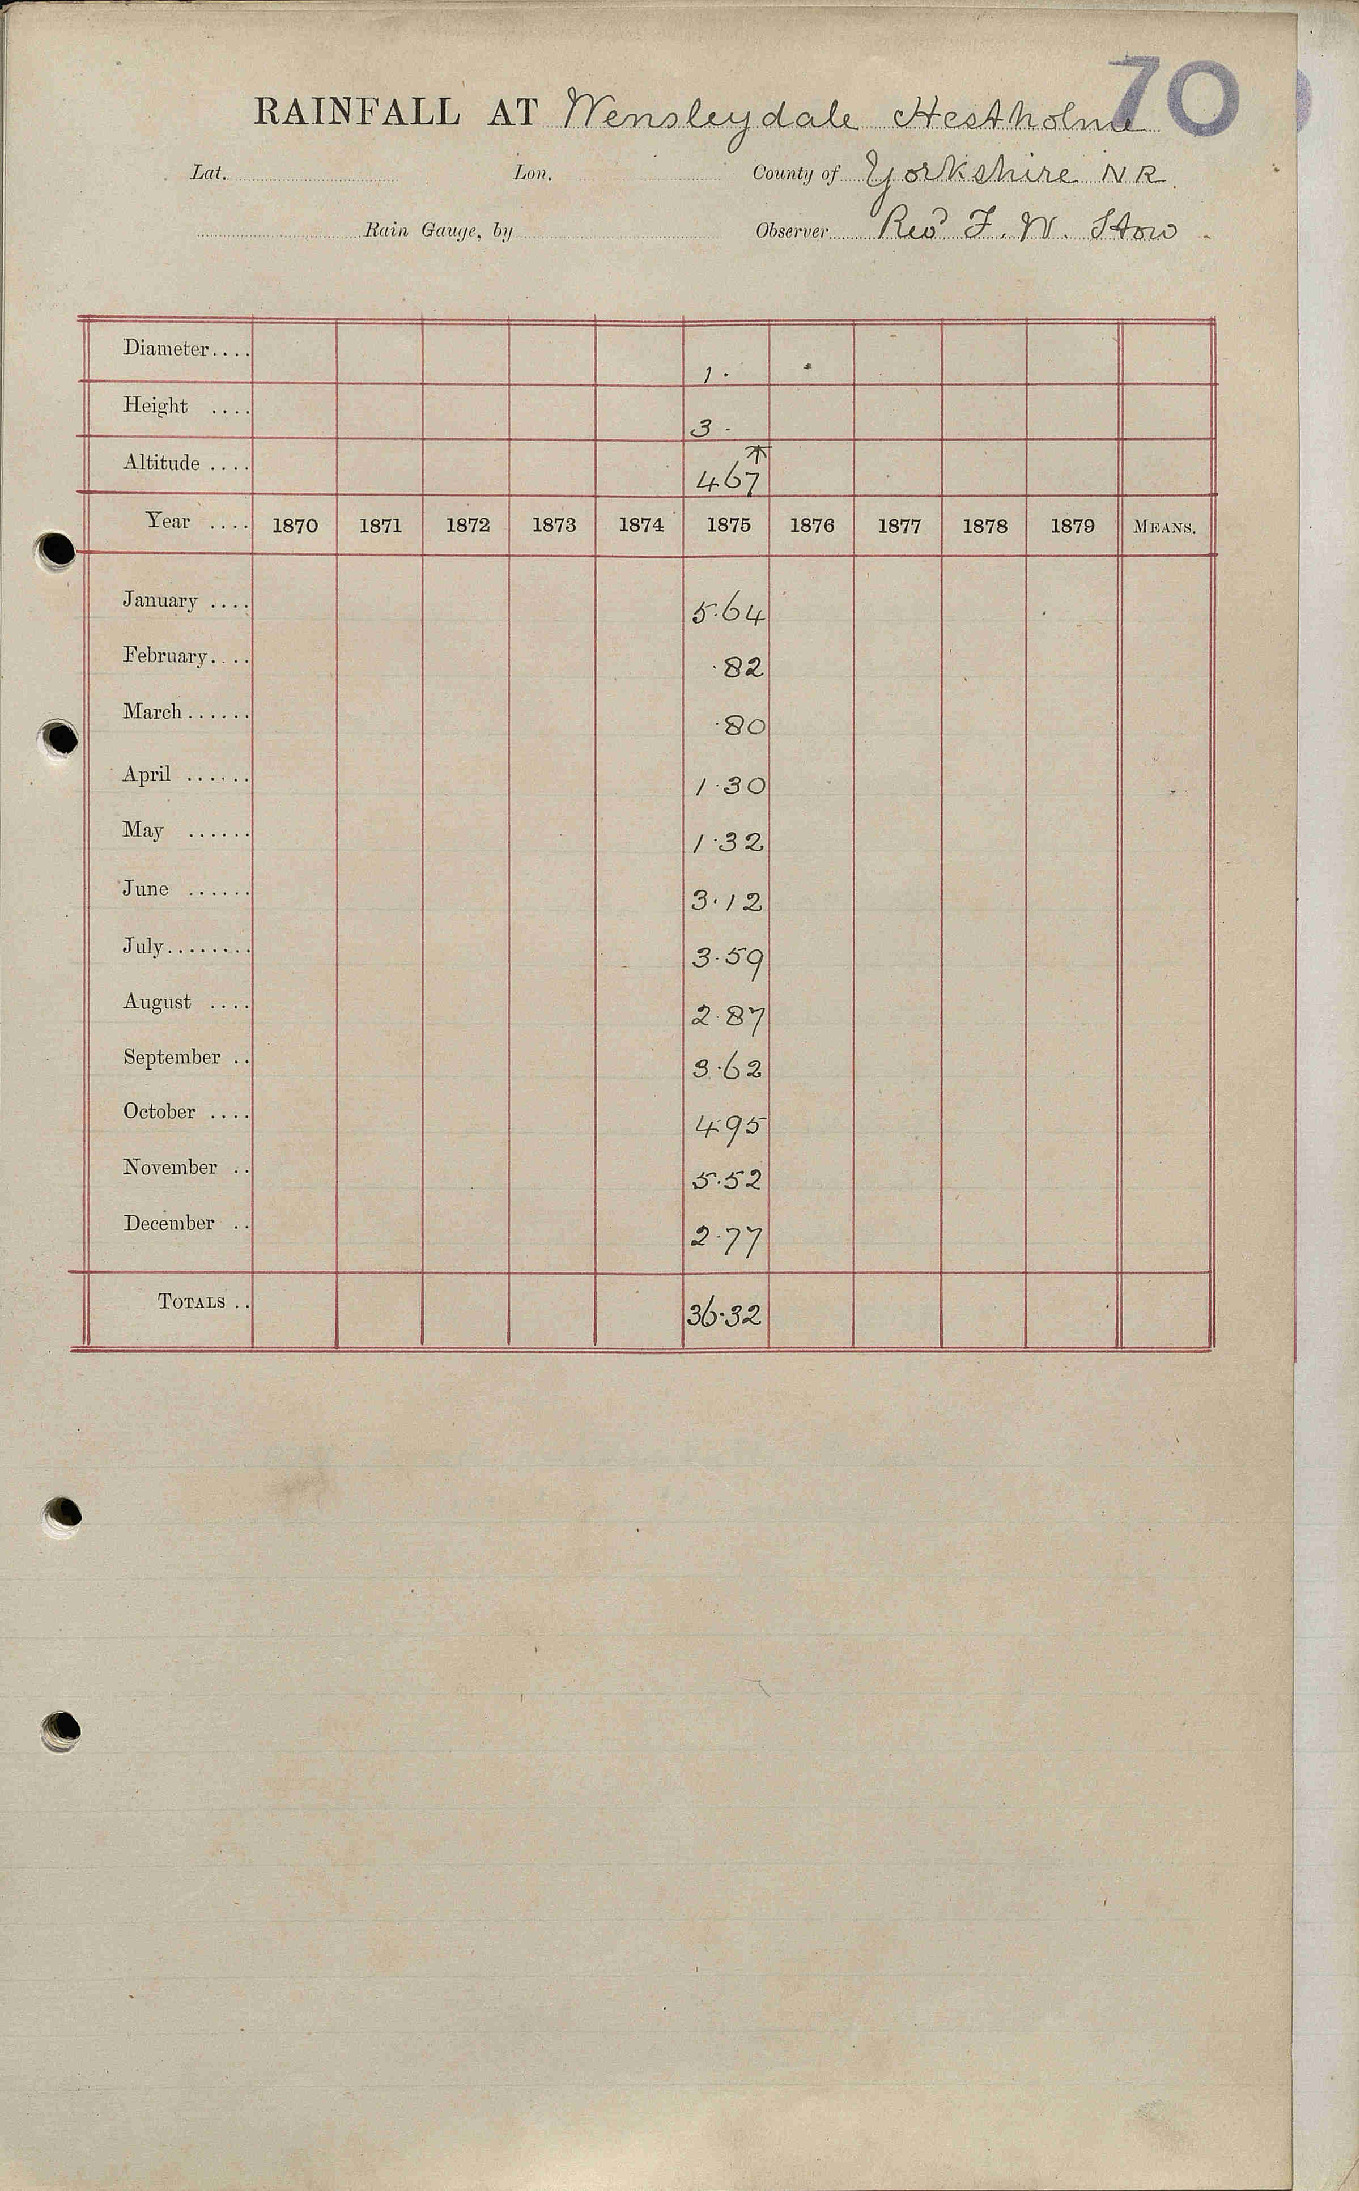 70
RAINFALL AT Wensleydale Hestholme
Lat. Lon. County of Yorkshire N R.
Rain Gauge, by Observer Revd F. W. Stow.
Diameter.... 1.
Height .... 3.
Altitude .... 467
Year .... 1870 1871 1872 1873 1874 1875 1876 1877 1878 1879 MEANS.
January .... 5.64
February.... .82
March...... .80
April ...... 1.30
May ...... 1.32
June ...... 3.12
July........ 3.59
August .... 2.87
September .. 3.62
October .... 4.95
November .. 5.52
December .. 2.77
TOTALS .. 36.32